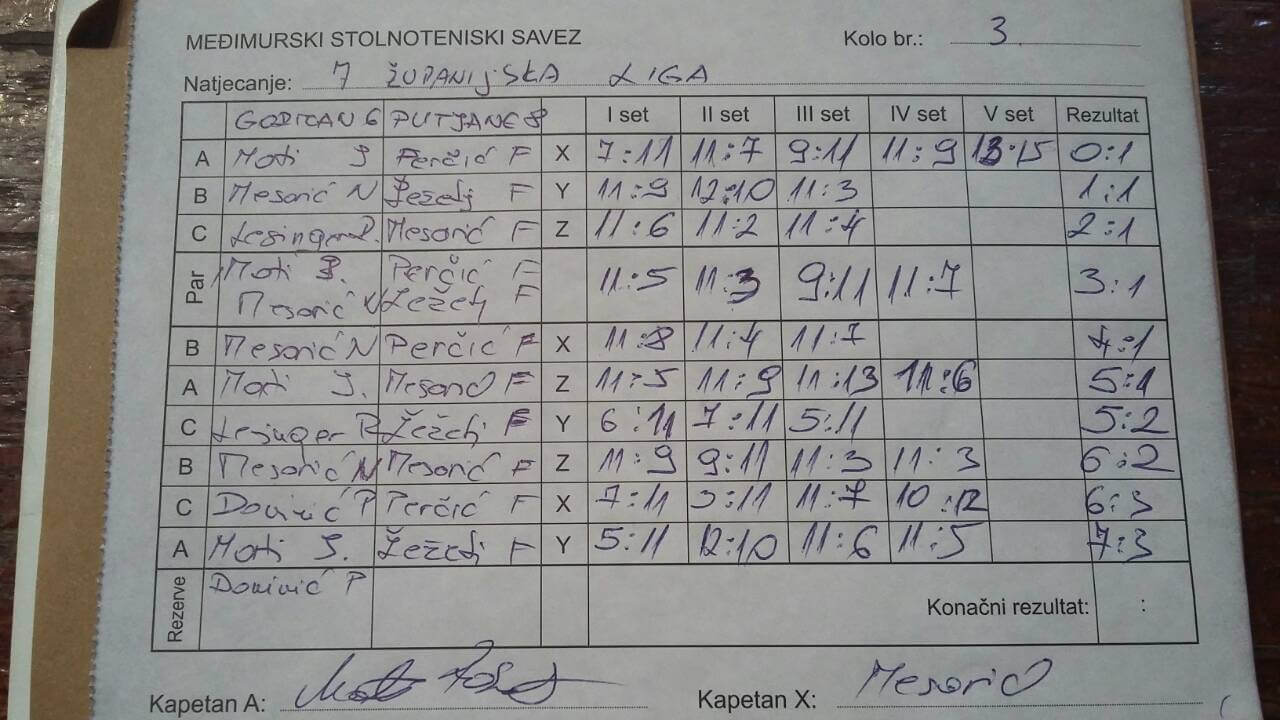 MEĐIMURSKI STOLNOTENISKI SAVEZ Kolo br.: 3.
Natjecanje: 7 ŽUPANIJSKA LIGA
GORICAN 6 PUTJANE 8 I set II set III set IV set V set Rezultat
A Moti J Perčić F X 7:11 11:7 9:11 11:9 13:15 0:1
B Mesarić N Leželj F Y 11:9 12:10 11:3 1:1
C Lesinger P. Mesarić F Z 11:6 11:2 11:4 2:1
Par Moti J. Perčić F 11:5 11:3 9:11 11:7 3:1
Mesarić N Leželj F
B Mesarić N Perčić F X 11:8 11:4 11:7 4:1
A Moti J. Mesarić F Z 11:5 11:9 11:13 11:6 5:1
C Lesinger P Leželj F Y 6:11 7:11 5:11 5:2
B Mesarić N Mesarić F Z 11:9 9:11 11:3 11:3 6:2
C Dominić P Perčić F X 7:11 9:11 11:7 10:12 6:3
A Moti J. Leželj F Y 5:11 12:10 11:6 11:5 7:3
Rezerve Dominić P Konačni rezultat: :
Kapetan A: Kapetan X: Mesarić